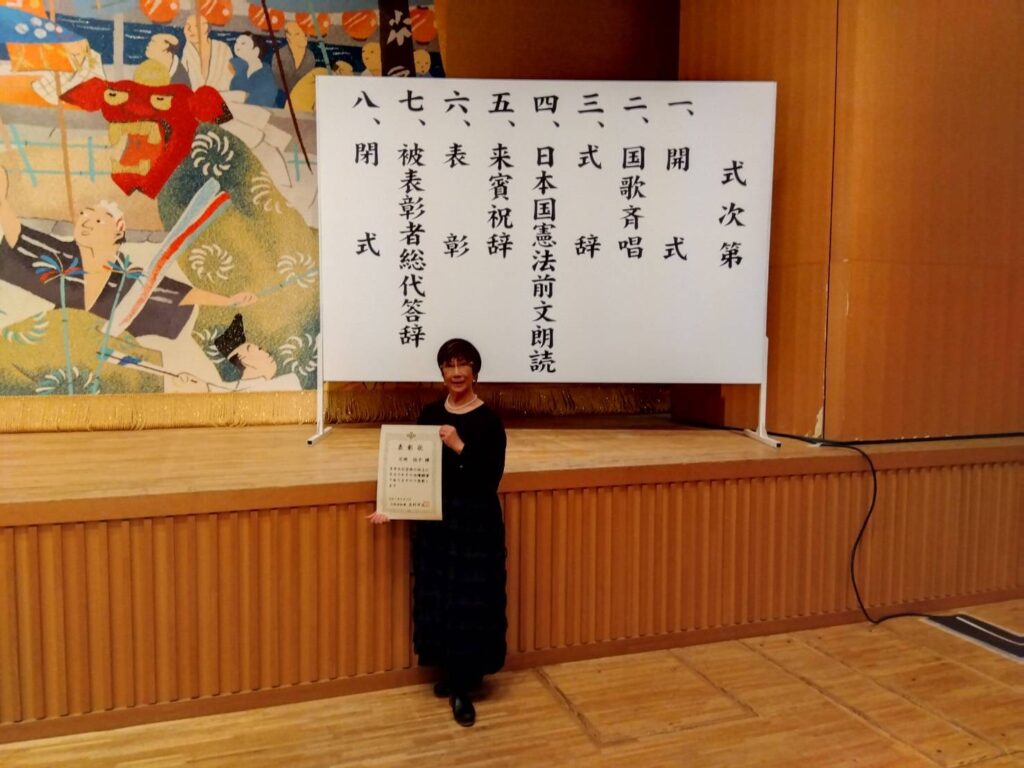 式次第
一、開式
二、国歌斉唱
三、式辞
四、日本国憲法前文朗読
五、来賓祝辞
六、表彰
七、被表彰者総代答辞
八、閉式
表彰状